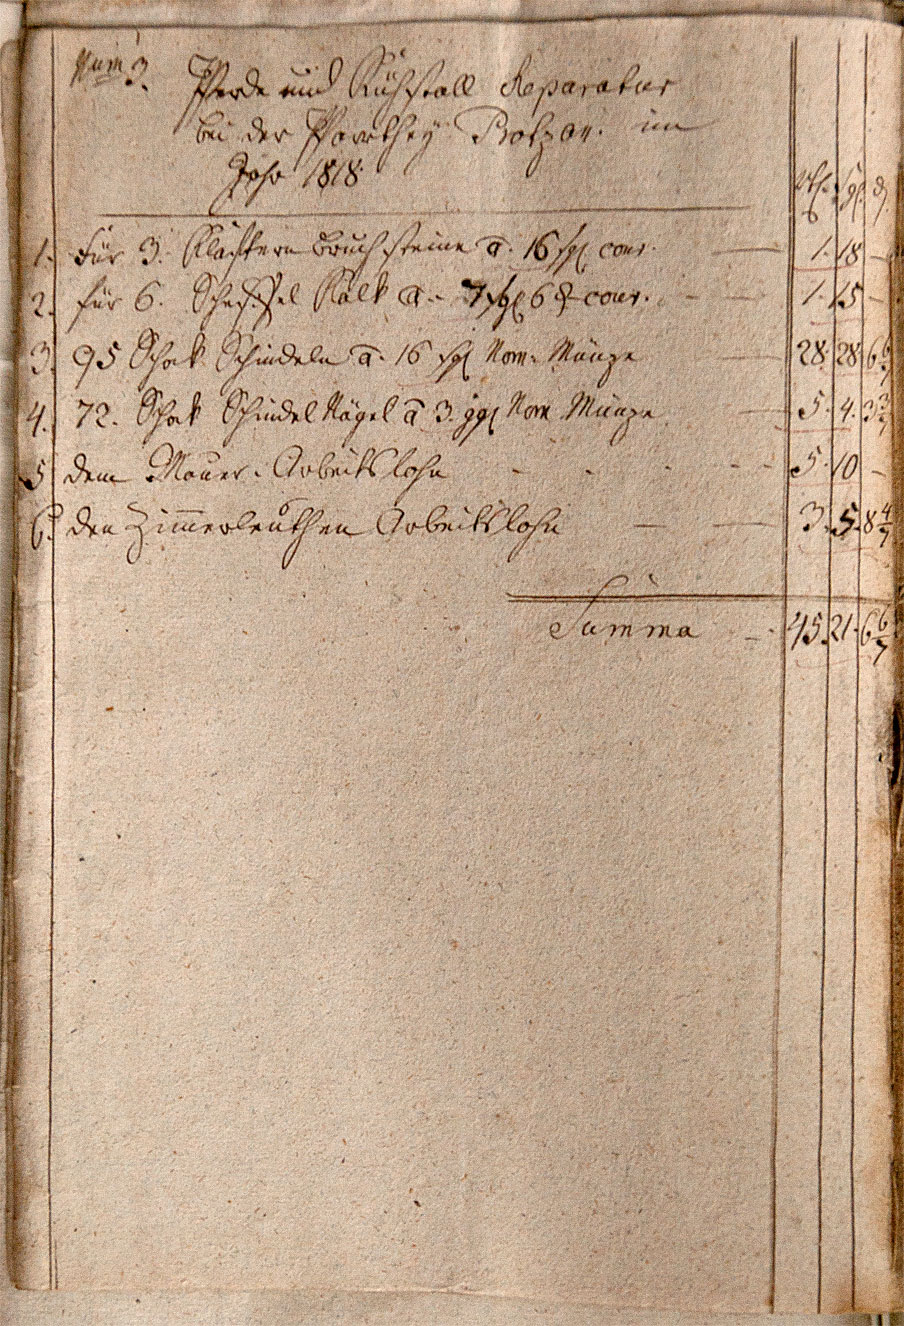 Num 3. Pferde und Kuhstall Reparatur
bei der Pfarrthey Protzan. im
Jahr 1818
rthl. sgl. d.
1. Für 3. Klaftern Bruchsteine a. 16 sgl cour. — 1. 18 —
2. für 6. Scheffel Kalk a. 7 sgl 6 d cour. — 1. 15 —
3. 95 Schok Schindeln a. 16 sgl Nom. Münze — 28. 28 6 6/7
4. 72. Schok Schindel Nägel a 3. ggl Nom Münze — 5. 4. 3 3/7
5 dem Maurer. Arbeitslohn - - - 5. 10 —
6. den Zimmerleuthen Arbeitslohn — — 3. 5. 8 4/7
Summa - 45. 21. 6 6/7